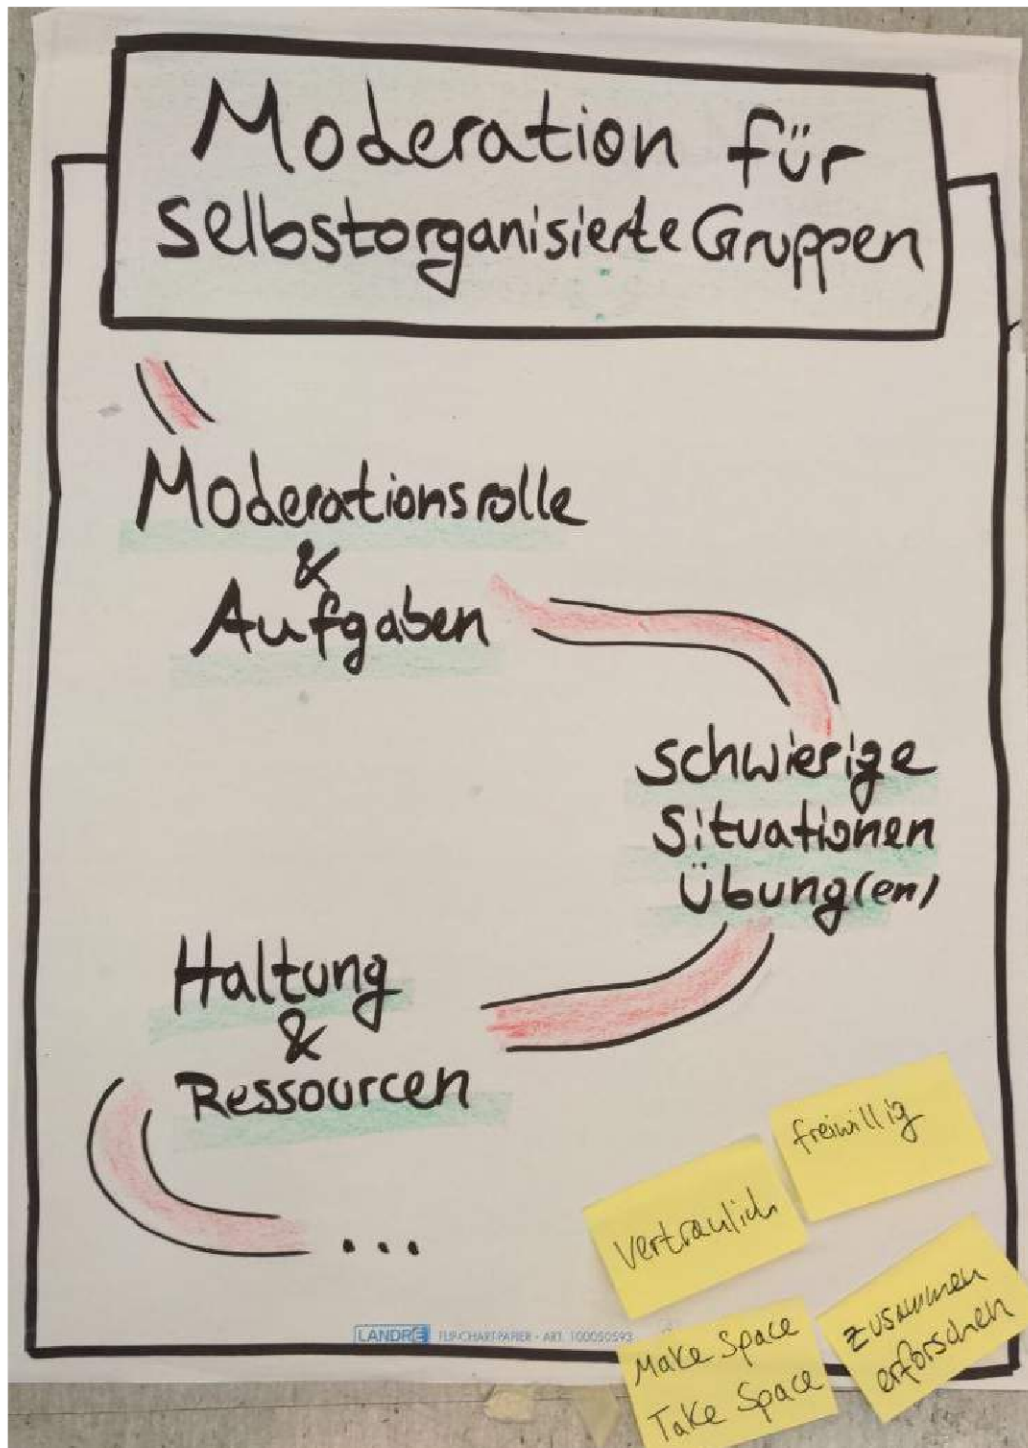 Moderation für
selbstorganisierte Gruppen
Moderationsrolle
&
Aufgaben
schwierige
Situationen
Übung(en)
Haltung
&
Ressourcen
...
freiwillig
vertraulich
zusammen
erforschen
Make Space
Take Space
LANDRÉ FLIP-CHART-PAPIER - ART. 100050593